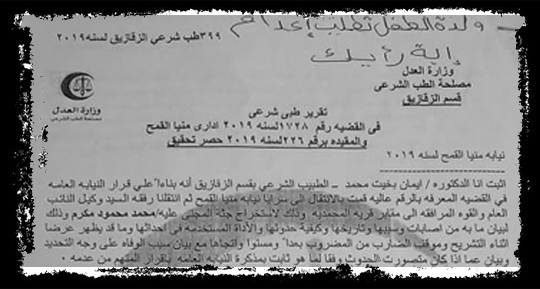 ولدة الطفل تطلب إعدام
إية رأيك
٣٩٩ طب شرعي الزقازيق لسنه ٢٠١٩
وزارة العدل
مصلحة الطب الشرعى
قسم الزقازيق
وزارة العدل
مصلحة الطب الشرعي
تقرير طبى شرعي
فى القضيه رقم ١٧٢٨ لسنه ٢٠١٩ ادارى منيا القمح
والمقيده برقم ٢٢٦ لسنه ٢٠١٩ حصر تحقيق
نيابه منيا القمح لسنه ٢٠١٩
اثبت انا الدكتوره / ايمان بخيت محمد ــ الطبيب الشرعي بقسم الزقازيق أنه بناءا علي قرار النيابه العامه
في القضيه المعرفه بالرقم عاليه قمت بالانتقال الي سرايا نيابه منيا القمح ثم انتقلنا رفقه السيد وكيل النائب
العام والقوه المرافقه الي مقابر قريه المحمديه وذلك لاستخراج جثة المجني عليه/ محمد محمود مكرم وذلك
لبيان ما به من اصابات وسببها وتاريخها وكيفية حدوثها والأداة المستخدمه في احداثها وما قد يظهر عرضا
اثناء التشريح وموقف الضارب من المضروب بعدا ومستوا واتجاها مع بيان سبب الوفاه على وجه التحديد
وبيان عما اذا كان متصورت الحدوث وفقا لما هو ثابت بمذكرة النيابه العامه باقرار المتهم من عدمه